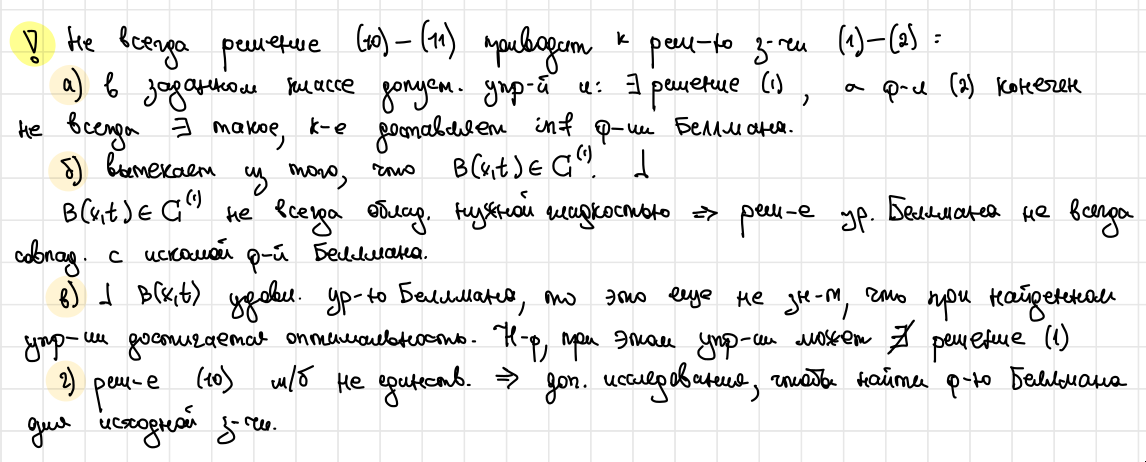 ! Не всегда решение (10)–(11) приводит к реш-ю з-чи (1)–(2):
а) в заданном классе допуст. упр-й u: ∃ решение (1), а ф-л (2) конечен
не всегда ∃ такое, к-е доставляет inf ф-ии Беллмана.
б) вытекает из того, что B(x,t) ∈ C⁽¹⁾. ⅃
B(x,t) ∈ C⁽¹⁾ не всегда облад. нужной гладкостью ⇒ реш-е ур. Беллмана не всегда
совпад. с искомой ф-й Беллмана.
в) ⅃ B(x,t) удовл. ур-ю Беллмана, то это еще не зн-т, что при найденном
упр-ии достигается оптимальность. Н-р, при этом упр-ии может ∄ решение (1)
г) реш-е (10) м/б не единств. ⇒ доп. исследования, чтобы найти ф-ю Беллмана
для исходной з-чи.